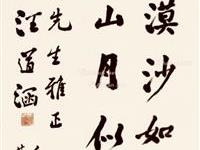 漠沙如
山月似
先生雅正
汪道涵